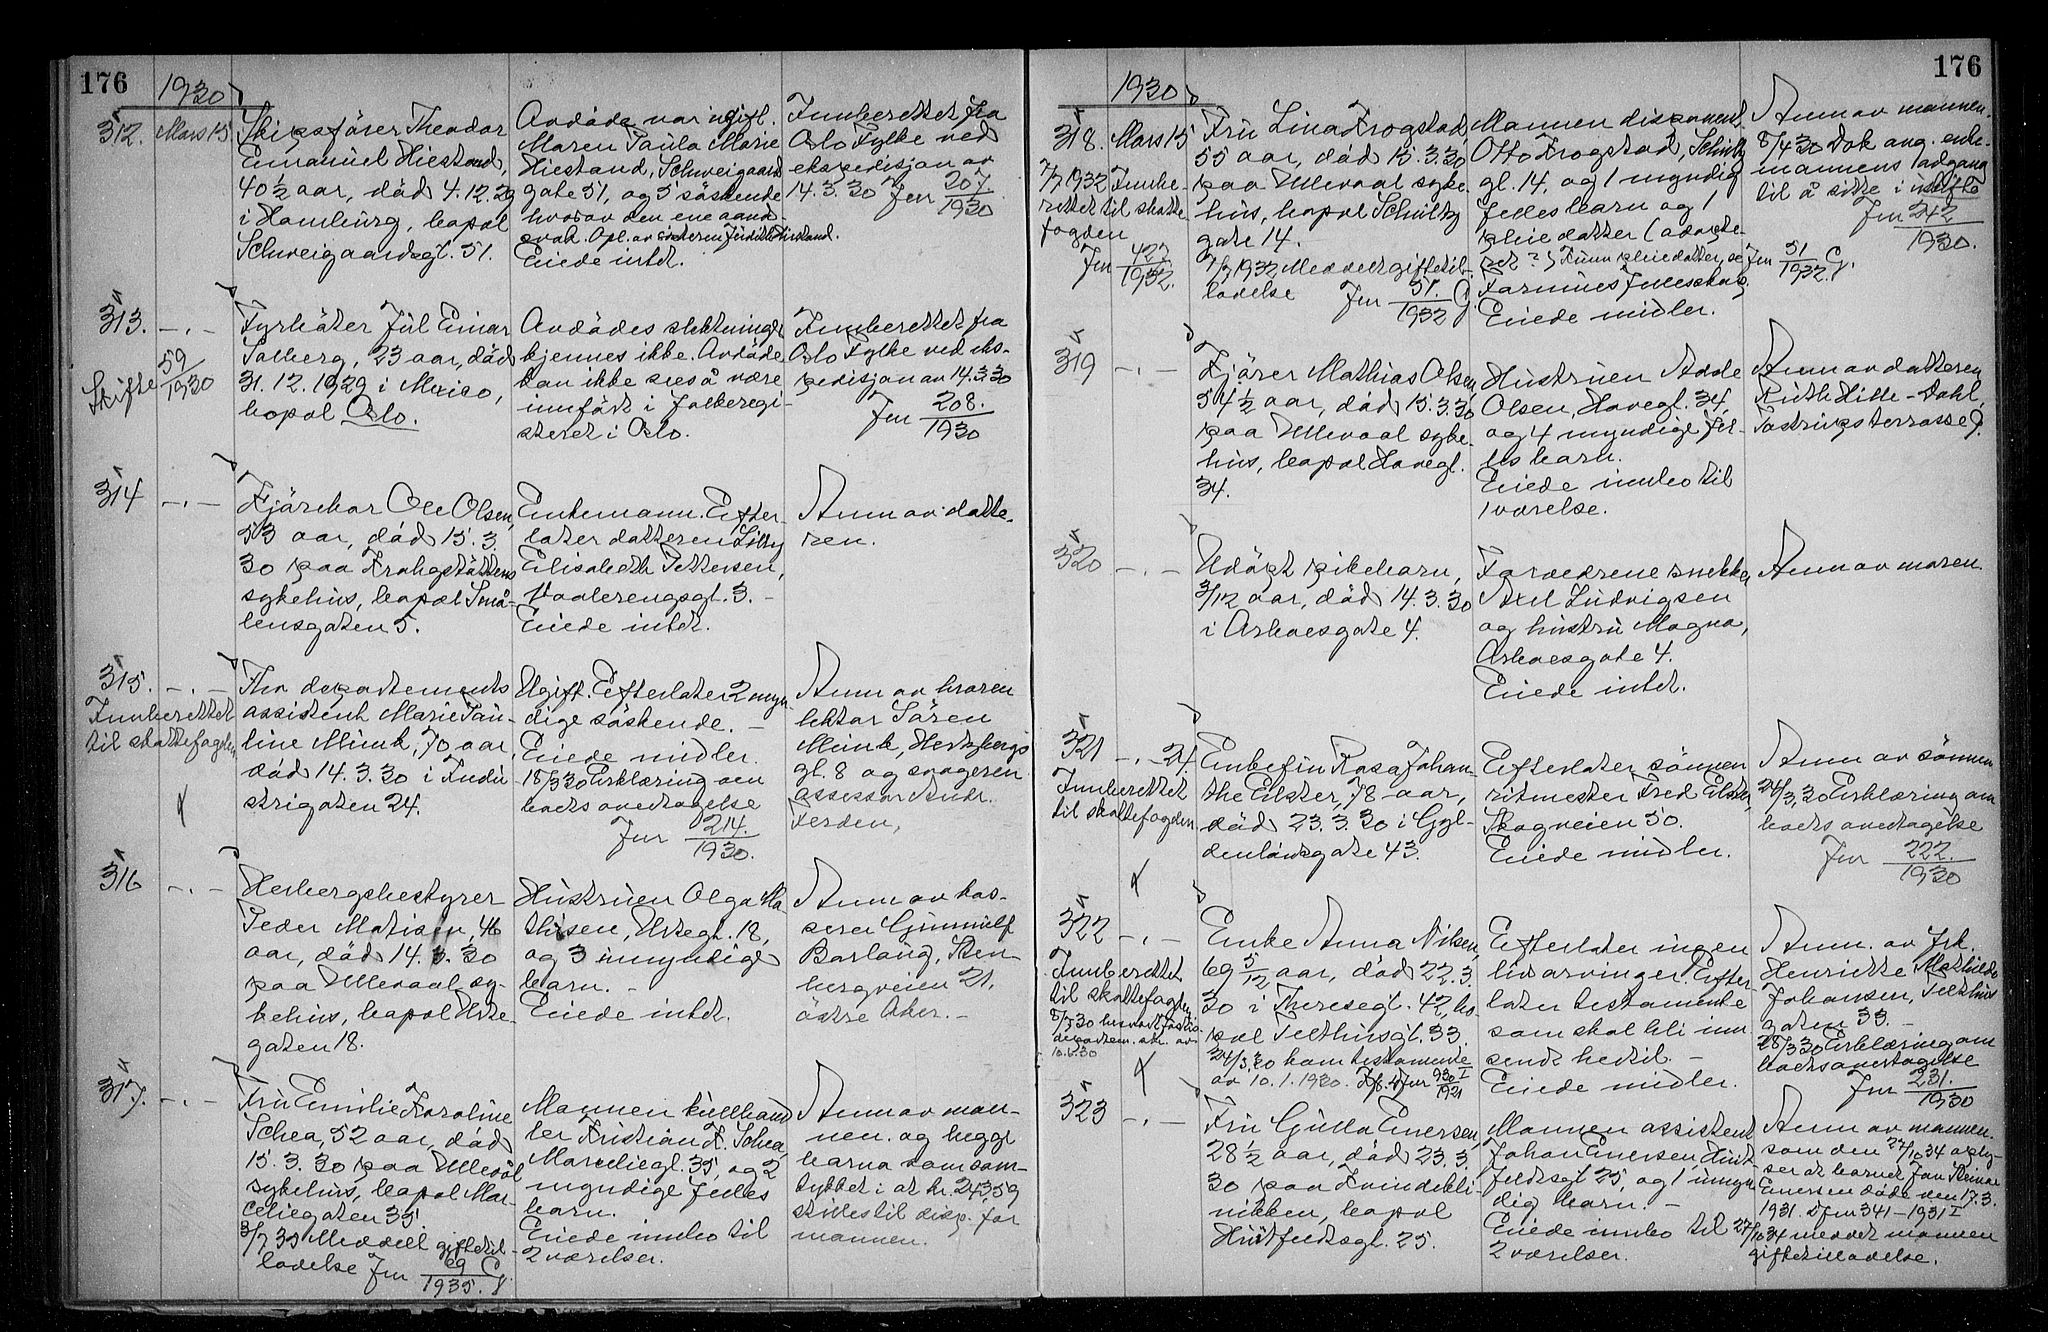 176
1930
312. Mars 15.
Skipsfører Theodor
Emanuel Hiestand,
40 1/2 aar, död 4.12.29
i Hamburg, bopæl
Schweigaardsgt. 51.
Avdöde var ugift.
Maren Paula Marie
Hiestand, Schweigaards
gate 51, og 5 söskende
hvorav den ene aands-
svak. Opl. av søsteren Judith Hiestand.
Eiede intet.
Innberettet fra
Oslo Fylke ved
ekspedisjon av
14.3.30 Jnr 207/1930
313. -"-
Skifte 59/1930
Fyrböter Jul Einar
Solberg, 23 aar, död
31.12.1929 i Mexico,
bopæl Oslo.
Avdödes slektninger
kjennes ikke. Avdöde
kan ikke sees å være
innfört i folkeregi-
steret i Oslo.
Innberettet fra
Oslo Fylke ved eks-
pedisjon av 14.3.30
Jnr 208./1930
314 -"-
Kjörekar Ole Olsen,
53 aar, död 15.3.
30 paa Krohgstöttens
sykehus, bopæl Små-
lensgaten 5.
Enkemann. Efter-
later datteren Lilly
Elisabeth Pettersen,
Vaalerengsgt. 3. -
Eiede intet.
Anm av datte-
ren.
315. -"-
Innberettet
til skattefogden
Frk departements
assistent Marie Pau-
line Munk, 70 aar,
död 14.3.30 i Indu
strigaten 24.
Ugift. Efterlater 2 myn
dige söskende. -
Eiede midler.
18/3 30 Erklæring om
boets overtagelse
Jnr 214./1930.
Anm av broren
lektor Sören
Munk, Hertzbergs
gt. 8 og svogeren
assessor Andr.
Ferden,
316 -"-
Herbergsbestyrer
Peder Matisen, 46
aar, död 14.3.30
paa Ullevaal sy-
kehus, bopæl Urte-
gaten 18.
Hustruen Olga Ma-
thisen, Urtegt. 18,
og 3 umyndige
barn. -
Eiede intet.
Anm av kas-
serer Gunnulf
Borlaug, Sten-
bergveien 21,
östre Aker. -
317. -"-
Fru Emilie Karoline
Schea, 52 aar, död
15.3.30 paa Ullevål
sykehus, bopæl Mar-
celiegaten 35.
3/7 35 Meddelt giftetil-
ladelse Jnr 69/1935. G.
Mannen kullhand
ler Kristian K. Schea,
Marceliegt. 35, og 2
myndige felles
barn.
Eiede innbo til
2 værelser.
Anm av man-
nen. og begge
barna som sam-
tykket i at kr. 243,59
stilles til disp. for
mannen.
176
1930
318. Mars 15
7/7 1932 Innbe-
rettet til skatte
fogden
Jnr 427/1932.
Fru Lina Frogstad,
55 aar, död 15.3.30
paa Ullevaal syke
hus, bopæl Schultz
gate 14.
7/7 1932 Meddelt giftetil-
ladelse Jnr 51./1932 G.
Mannen disponent
Otto Frogstad, Schultz
gt. 14, og 1 myndig
felles barn og 1
pleiedatter (adopte-
ret?) Kunn pleiedatter, se Jnr 51/1932 G.
Formues felleskap.
Eiede midler.
Anm av mannen.
8/4 30 Dok ang. enke-
mannens adgang
til å sitte i uskifte
Jnr 242/1930.
319 -"-
Kjörer Mathias Olsen,
54 1/2 aar, död 15.3.30
paa Ullevaal syke-
hus, bopæl Havegt.
34.
Hustruen Adde
Olsen, Havegt. 34,
og 4 myndige fel-
les barn.
Eiede innbo til
1 værelse.
Anm av datteren
Ruth Hille-Dahl,
Tostrups terrasse 9.
320 -"-
Udöpt pikebarn,
3/12 aar, död 14.3.30
i Arkoesgate 4.
Forældrene snekker
Axel Ludvigsen
og hustru Magna,
Askoesgate 4.
Eiede intet.
Anm av moren.
321 -"- 24.
Innberettet
til skattefogden
Enkefru Rosa Johan-
the Elster, 78 aar,
död 23.3.30 i Gyl-
denlövsgate 43.
Efterlater sönnen
ritmester Fred Elster,
Skogveien 50.
Eiede midler.
Anm av sönnen
24/3 30 Erklæring om
boets overtagelse
Jnr 222./1930
322 -"-
Innberettet
til skattefogden
Enke Anna Nilsen,
69 5/12 aar, död 22.3.
30 i Theresegt. 42, bo-
pæl Telthusgt. 33.
24/3 30 kom testamente
av 10.1.1930.
Efterlater ingen
livsarvinger. Efter-
later testamente
som skal bli inn
sendt hertil. -
Eiede midler.
Anm. av frk.
Henriette Mathilde
Johansen, Telthus
gaten 33. -
28/3 30 Erklæring om
boets overtagelse
Jnr 231./1930
323 -"-
Fru Gulla Enersen,
28 1/2 aar, död 23.3.
30 paa Kvindekli-
nikken, bopæl
Huitfeldtsgt. 25.
Mannen assistent
Johan Enersen, Huit-
feldtsgt 25, og 1 umyn
dig barn. -
Eiede innbo til
2 værelser.
Anm av mannen.
som den 27/10 34 oply-
ser at barnet Jan Reimar
Enersen döde den 17.3.
1931. Jnr 341-1931 I
27/10 34 meddelt mannen
giftetilladelse.